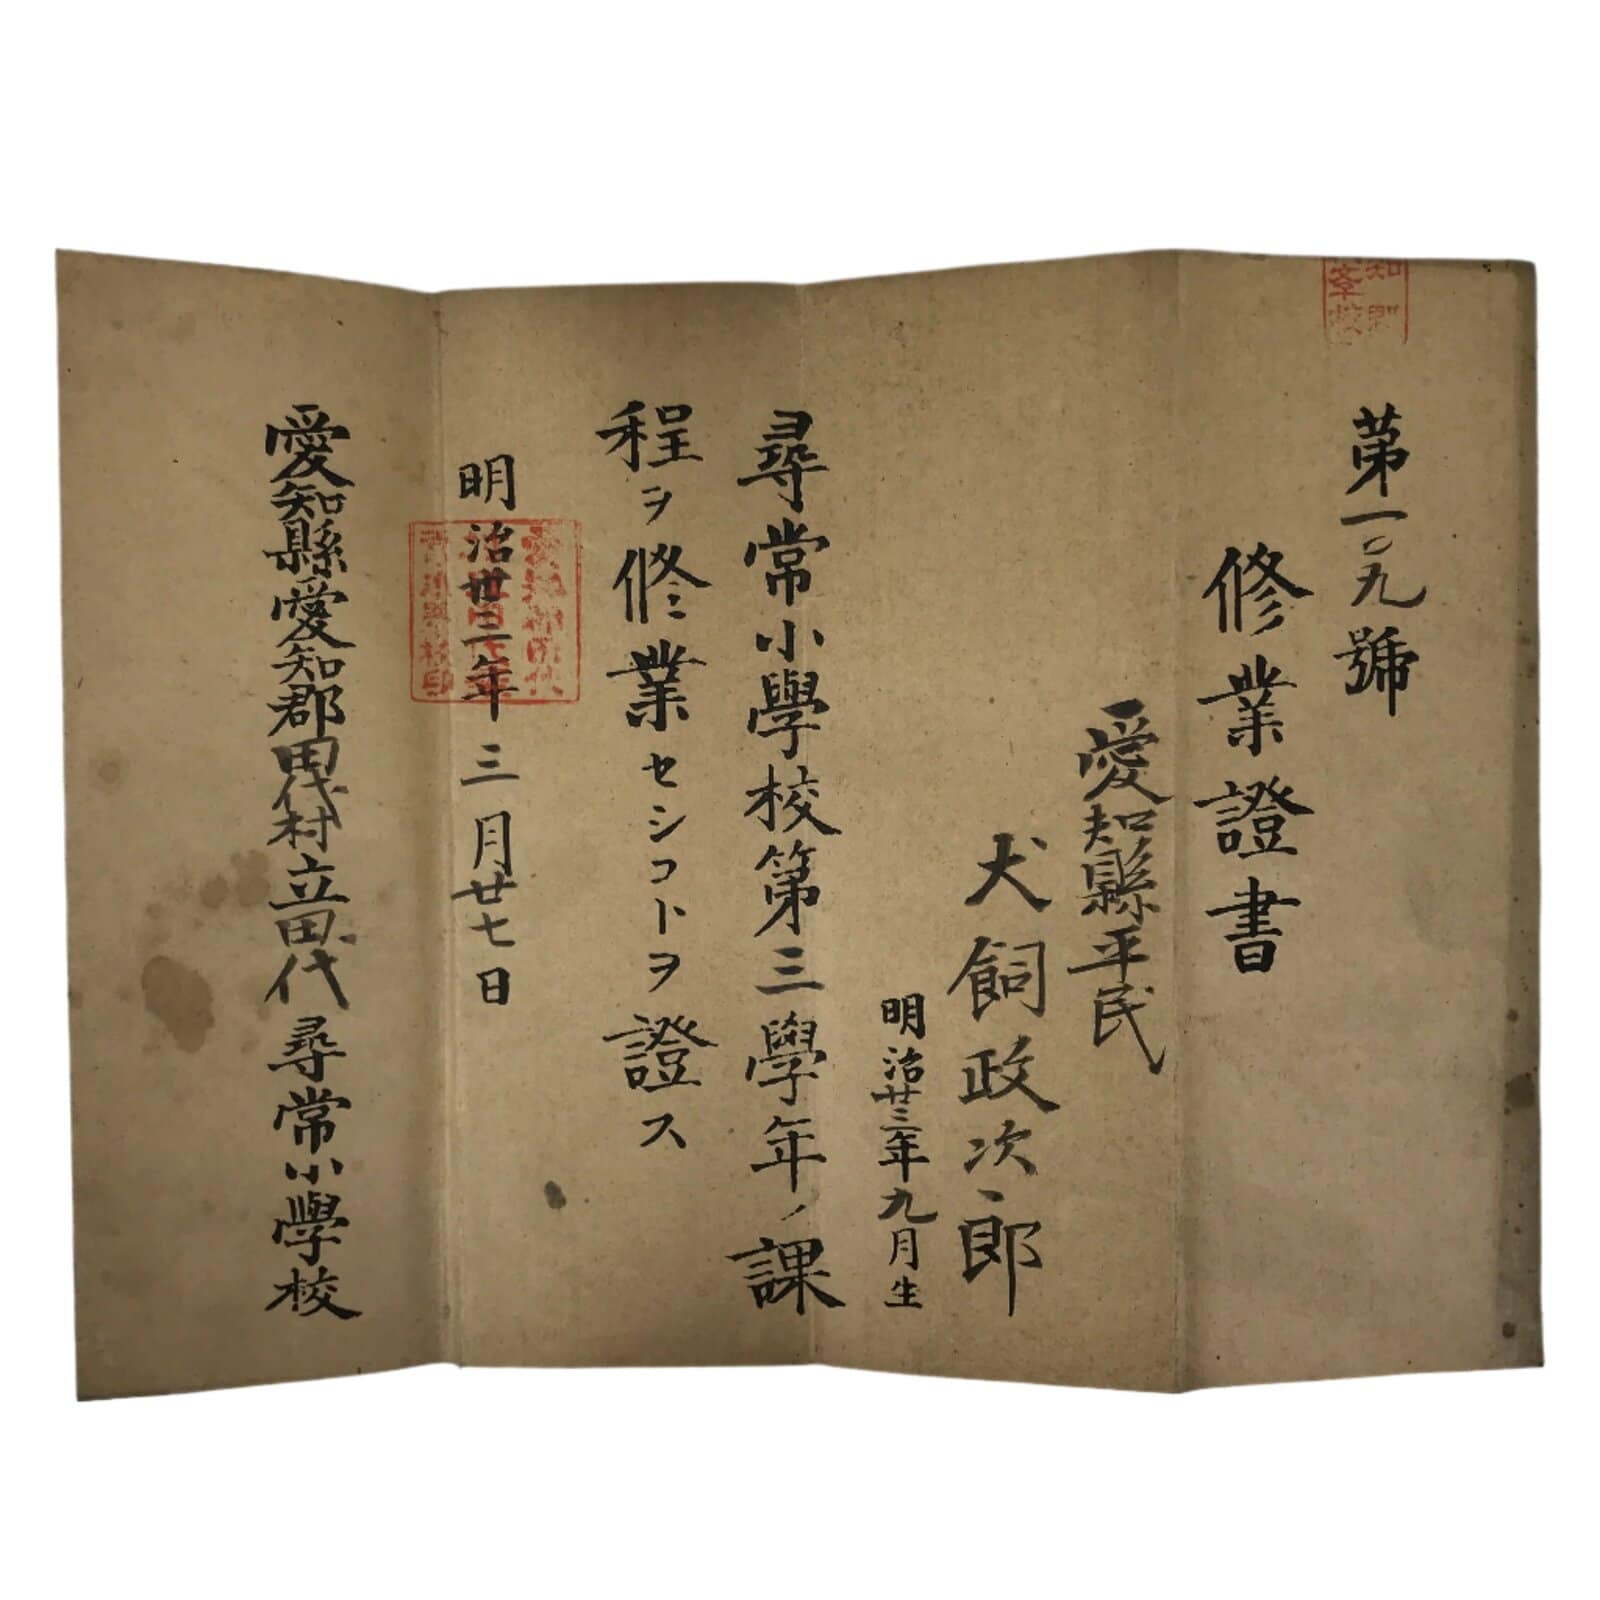 第一〇九號
修業證書
愛知縣平民
犬飼政次郎
明治廿三年九月生
尋常小學校第三學年ノ課
程ヲ修業セシコトヲ證ス
明治卅三年三月廿七日
愛知縣愛知郡田代村立田代尋常小學校